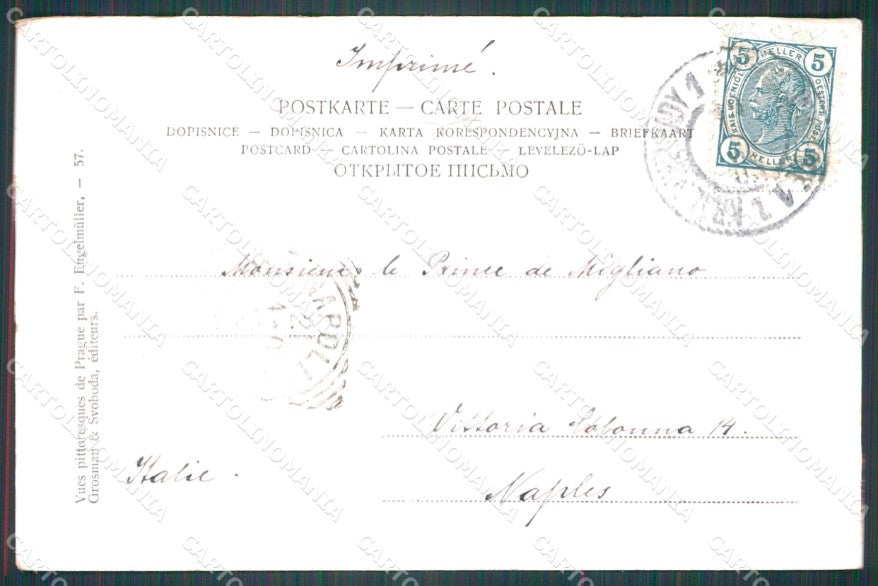 Imprimé.
POSTKARTE — CARTE POSTALE
DOPISNICE — DOPISNICA — KARTA KORESPONDENCYJNA — BRIEFKAART
POSTCARD — CARTOLINA POSTALE — LEVELEZŐ-LAP
ОТКРЫТОЕ ПИСЬМО
5 HELLER 5
5 HELLER 5
Monsieur le Prince de Migliano
NAPOLI
21
Vittoria Colonna 14.
Italie.
Naples
Vues pittoresques de Prague par F. Engelmüller. — 57.
Grosman & Svoboda, éditeurs.
CARTOLINOMANIA